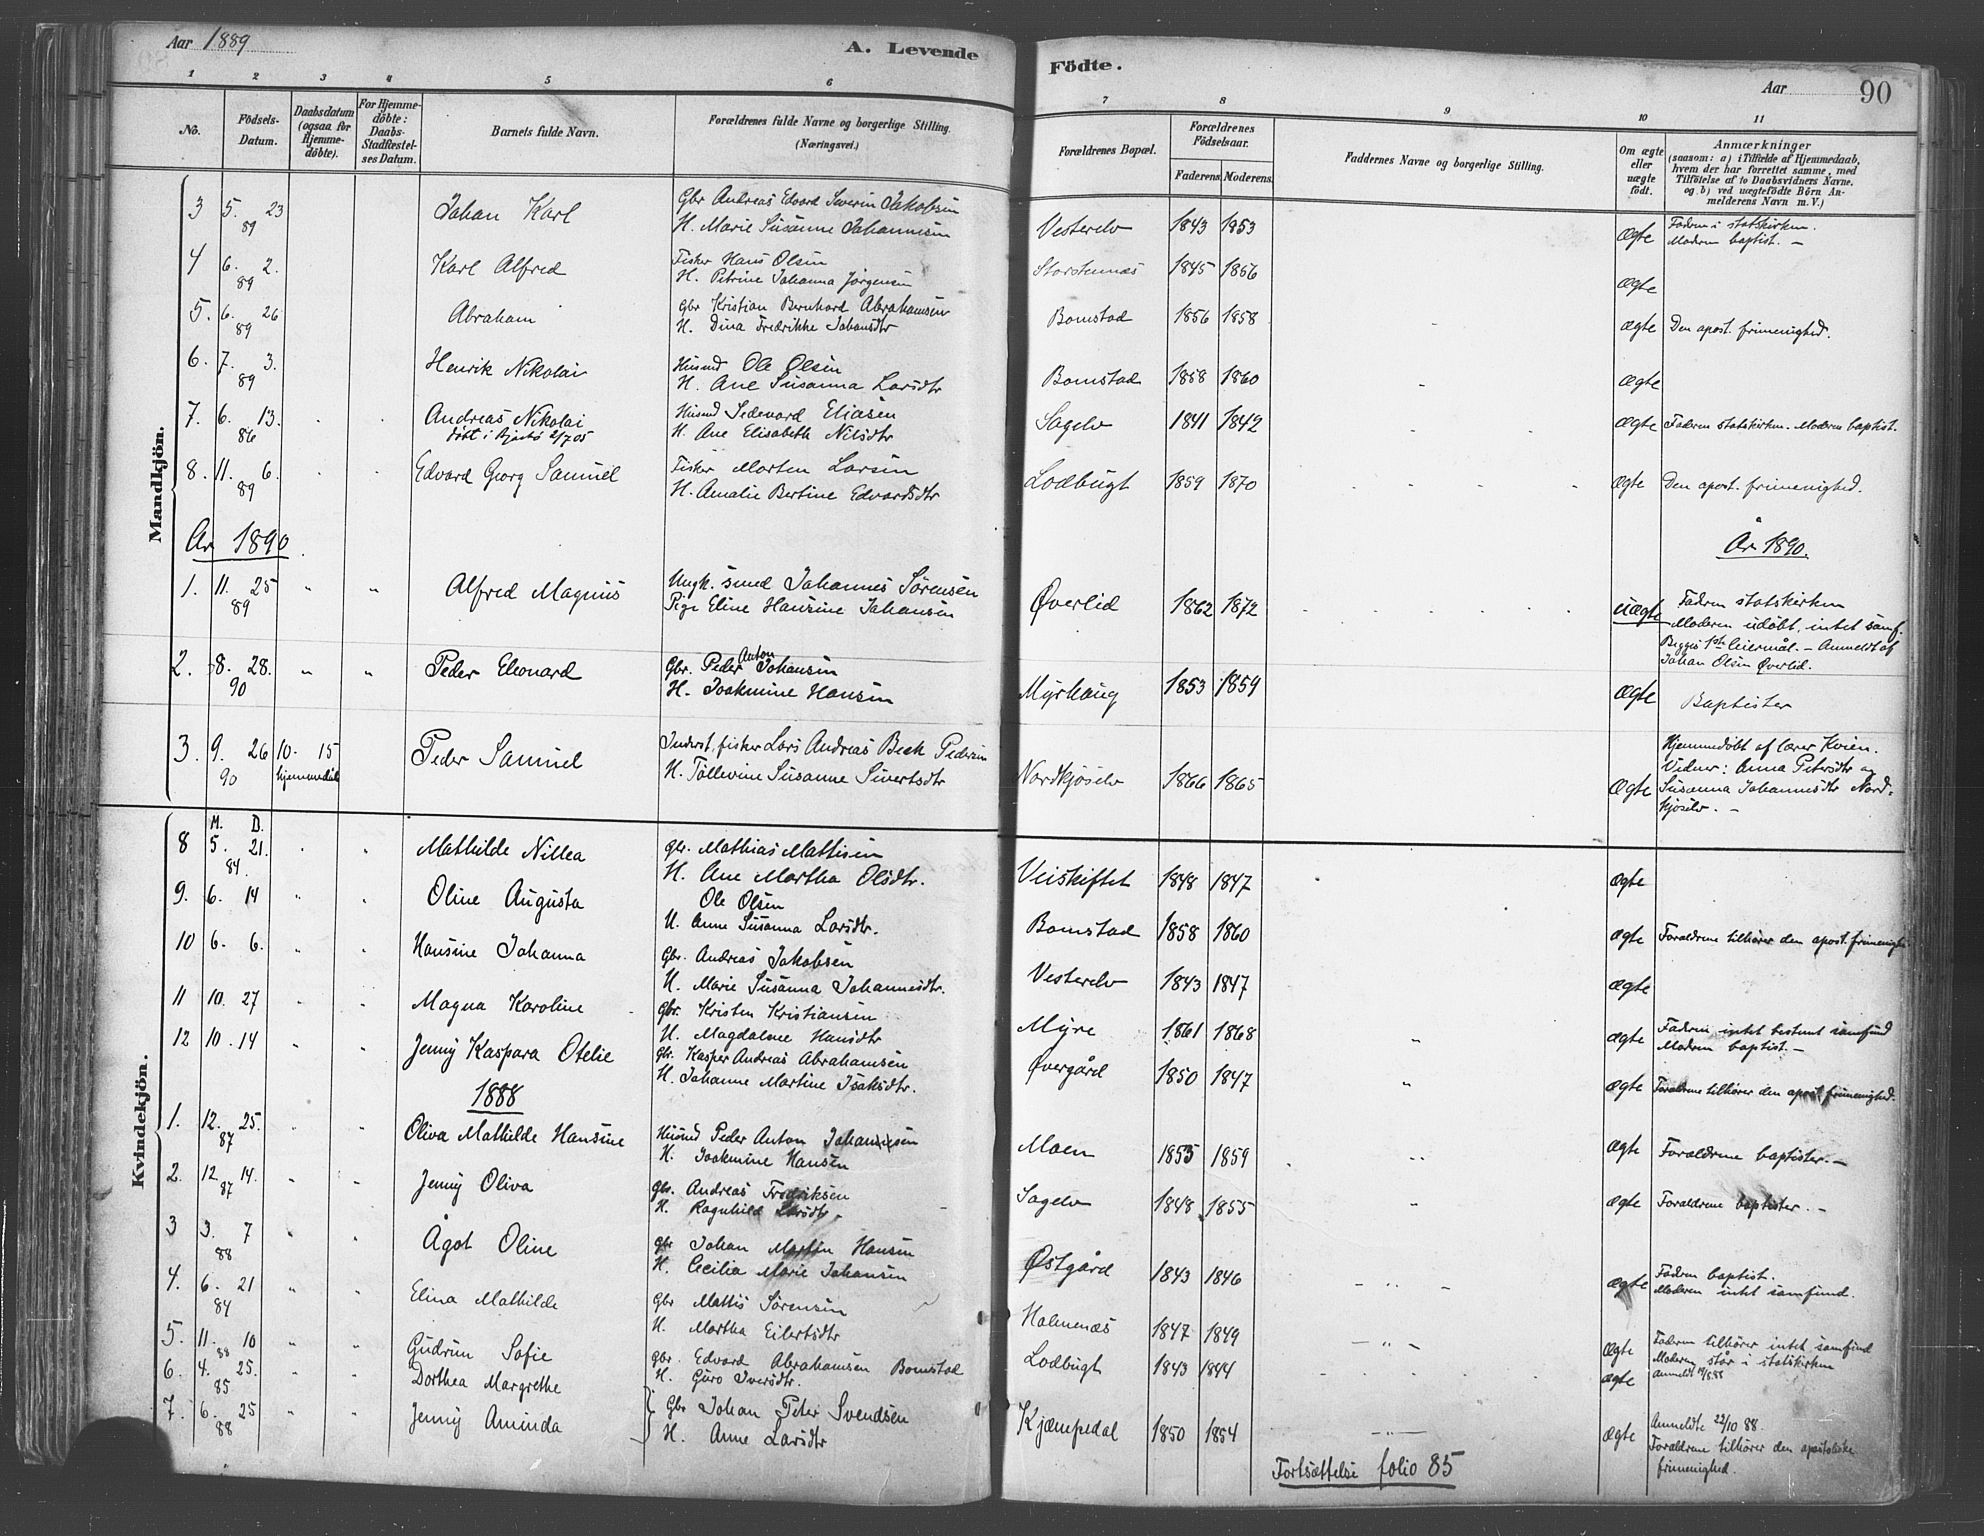 Aar 1889
A. Levende
Födte.
Aar
90
1 2 3 4 5 6 7 8 9 10 11
No.
Födsels-Datum.
Daabsdatum (ogsaa for Hjemmedöbte).
For Hjemmedöbte: Daabs-Stadfæstelses Datum.
Barnets fulde Navn.
Forældrenes fulde Navne og borgerlige Stilling. (Næringsvei.)
Forældrenes Bopæl.
Forældrenes Födselsaar.
Faderens. Moderens.
Faddernes Navne og borgerlige Stilling.
Om ægte eller uægte födt.
Anmærkninger
(saasom: a) i Tilfælde af Hjemmedaab, hvem der har forrettet samme, med Tilföielse af to Daabsvidners Navne, og b) ved uægtefödte Börn Anmelderens Navn m. V.)
Mandkjön.
3 5. 23 89 Johan Karl Gbr Andreas Edvard Severin Jakobsen
H. Marie Susanne Johannesen Vesterelv 1843 1853 ægte Faderen i statskirken.
Moderen baptist. –
4 6. 2. 89 Karl Alfred Fisker Hans Olsen
H. Petrine Johanna Jørgensen Storstennæs 1845 1856 ægte
5. 6. 26 89 Abraham Gbr Kristian Bernhard Abrahamsen
H. Dina Fredrikke Johansdtr Bomstad 1856 1858 ægte Den apost. frimenighed.
6. 7. 3. 89 Henrik Nikolai Husmd Ole Olsen
H. Ane Susanna Larsdtr Bomstad 1858 1860 ægte
7. 6. 13. 86 Andreas Nikolai
døbt i 2/7 05 Husmd Sedevard Eliasen
H. Ane Elisabeth Nilsdtr Sagelv 1841 1842 ægte Faderen statskirken. Moderen baptist.
8. 11. 6. 89 Edvard Georg Samuel Fisker Morten Larsen
H. Amalie Bertine Edvardsdtr Lodbugt 1859 1870 ægte Den apost. frimenighed.
År 1890 År 1890.
1. 11. 25 89 Alfred Magnus Ungk. smed Johannes Sørensen
Pige Eline Hansine Johansen Øverlid 1862 1872 uægte Faderen statskirken
Moderen udøbt, intet samf.
Begges 1ste leiermål. – Anmeldt af
Johan Olsen Øverlid.
2. 8. 28. 90 Peder Eleonard Gbr. Peder Anton Johansen
H. Joakmine Hansen Myrhaug 1853 1859 ægte Baptister
3. 9. 26 90 10. 15 hjemmedøbt Peder Samuel Inderst, fisker Lars Andreas Beck Pedersen
H. Tollevine Susanne Sivertsdtr Nordkjoselv 1866 1865 ægte Hjemmedøbt af lærer Kvien.
Vidner: Anna Petersdtr og
Susanna Johannesdtr Nord-
kjoselv. –
Kvindekjön.
M. D.
8 5. 21. 84. Mathilde Nillea gbr. Mathias Mattisen
H. Ane Martha Olsdtr. Veiskiftet 1848 1847 ægte
9. 6. 14 Oline Augusta Ole Olsen
H. Anne Susanna Larsdtr. Bomstad 1858 1860 ægte Forældrene tilhører den apost. frimenighed
10 6. 6. Hansine Johanna Gbr. Andreas Jakobsen
H. Marie Susanna Johannesdtr. Vesterelv 1843 1847 ægte
11 10. 27 Magna Karoline gbr. Kristen Kristiansen
H. Magdalene Hansdtr Myre 1861 1868 ægte Faderen intet bestemt samfund
Moderen baptist. –
12 10. 14 Jenny Kaspara Otelie gbr. Kasper Andreas Abrahamsen
H. Johanne Martine Isaksdtr. Øvergård 1850 1847 ægte Forældrene tilhører den apost. frimenighed.
1888
1. 12. 25. 87 Oliva Mathilde Hansine Husmd Peder Anton Johannesen
H. Joakmine Hansen Moen 1853 1859 ægte Forældrene baptister. –
2. 12. 14. 87 Jenny Oliva gbr. Andreas Fredriksen
H. Ragnhild Larsdtr. Sagelv 1848 1855 ægte Forældrene baptister. –
3 3. 7 88 Ågot Oline gbr Johan Martin Hansen
H. Cecilia Marie Johansen Østgård 1843 1846 ægte Faderen baptist.
Moderen intet samfund.
4. 6. 21 84 Elina Mathilde Gbr Mattis Sørensen
H. Martha Eilertsdtr Holmenæs 1847 1849 ægte Faderen tilhører intet samfund
Moderen står i statskirken
5. 11. 10 88 Gudrun Sofie gbr. Edvard Abrahamsen Bomstad
6. 4. 25. 85 Dorthea Margrethe H. Guro Iversdtr. Lodbugt 1843 1844 ægte
7. 6. 25 88 Jenny Aminda Gbr Johan Peter Svendsen
H. Anne Larsdtr Kjæmpedal 1850 1854 ægte Anmeldte 22/10 88.
Forældrene tilhører den apostoliske
frimenighed.
Fortsættelse folio 85